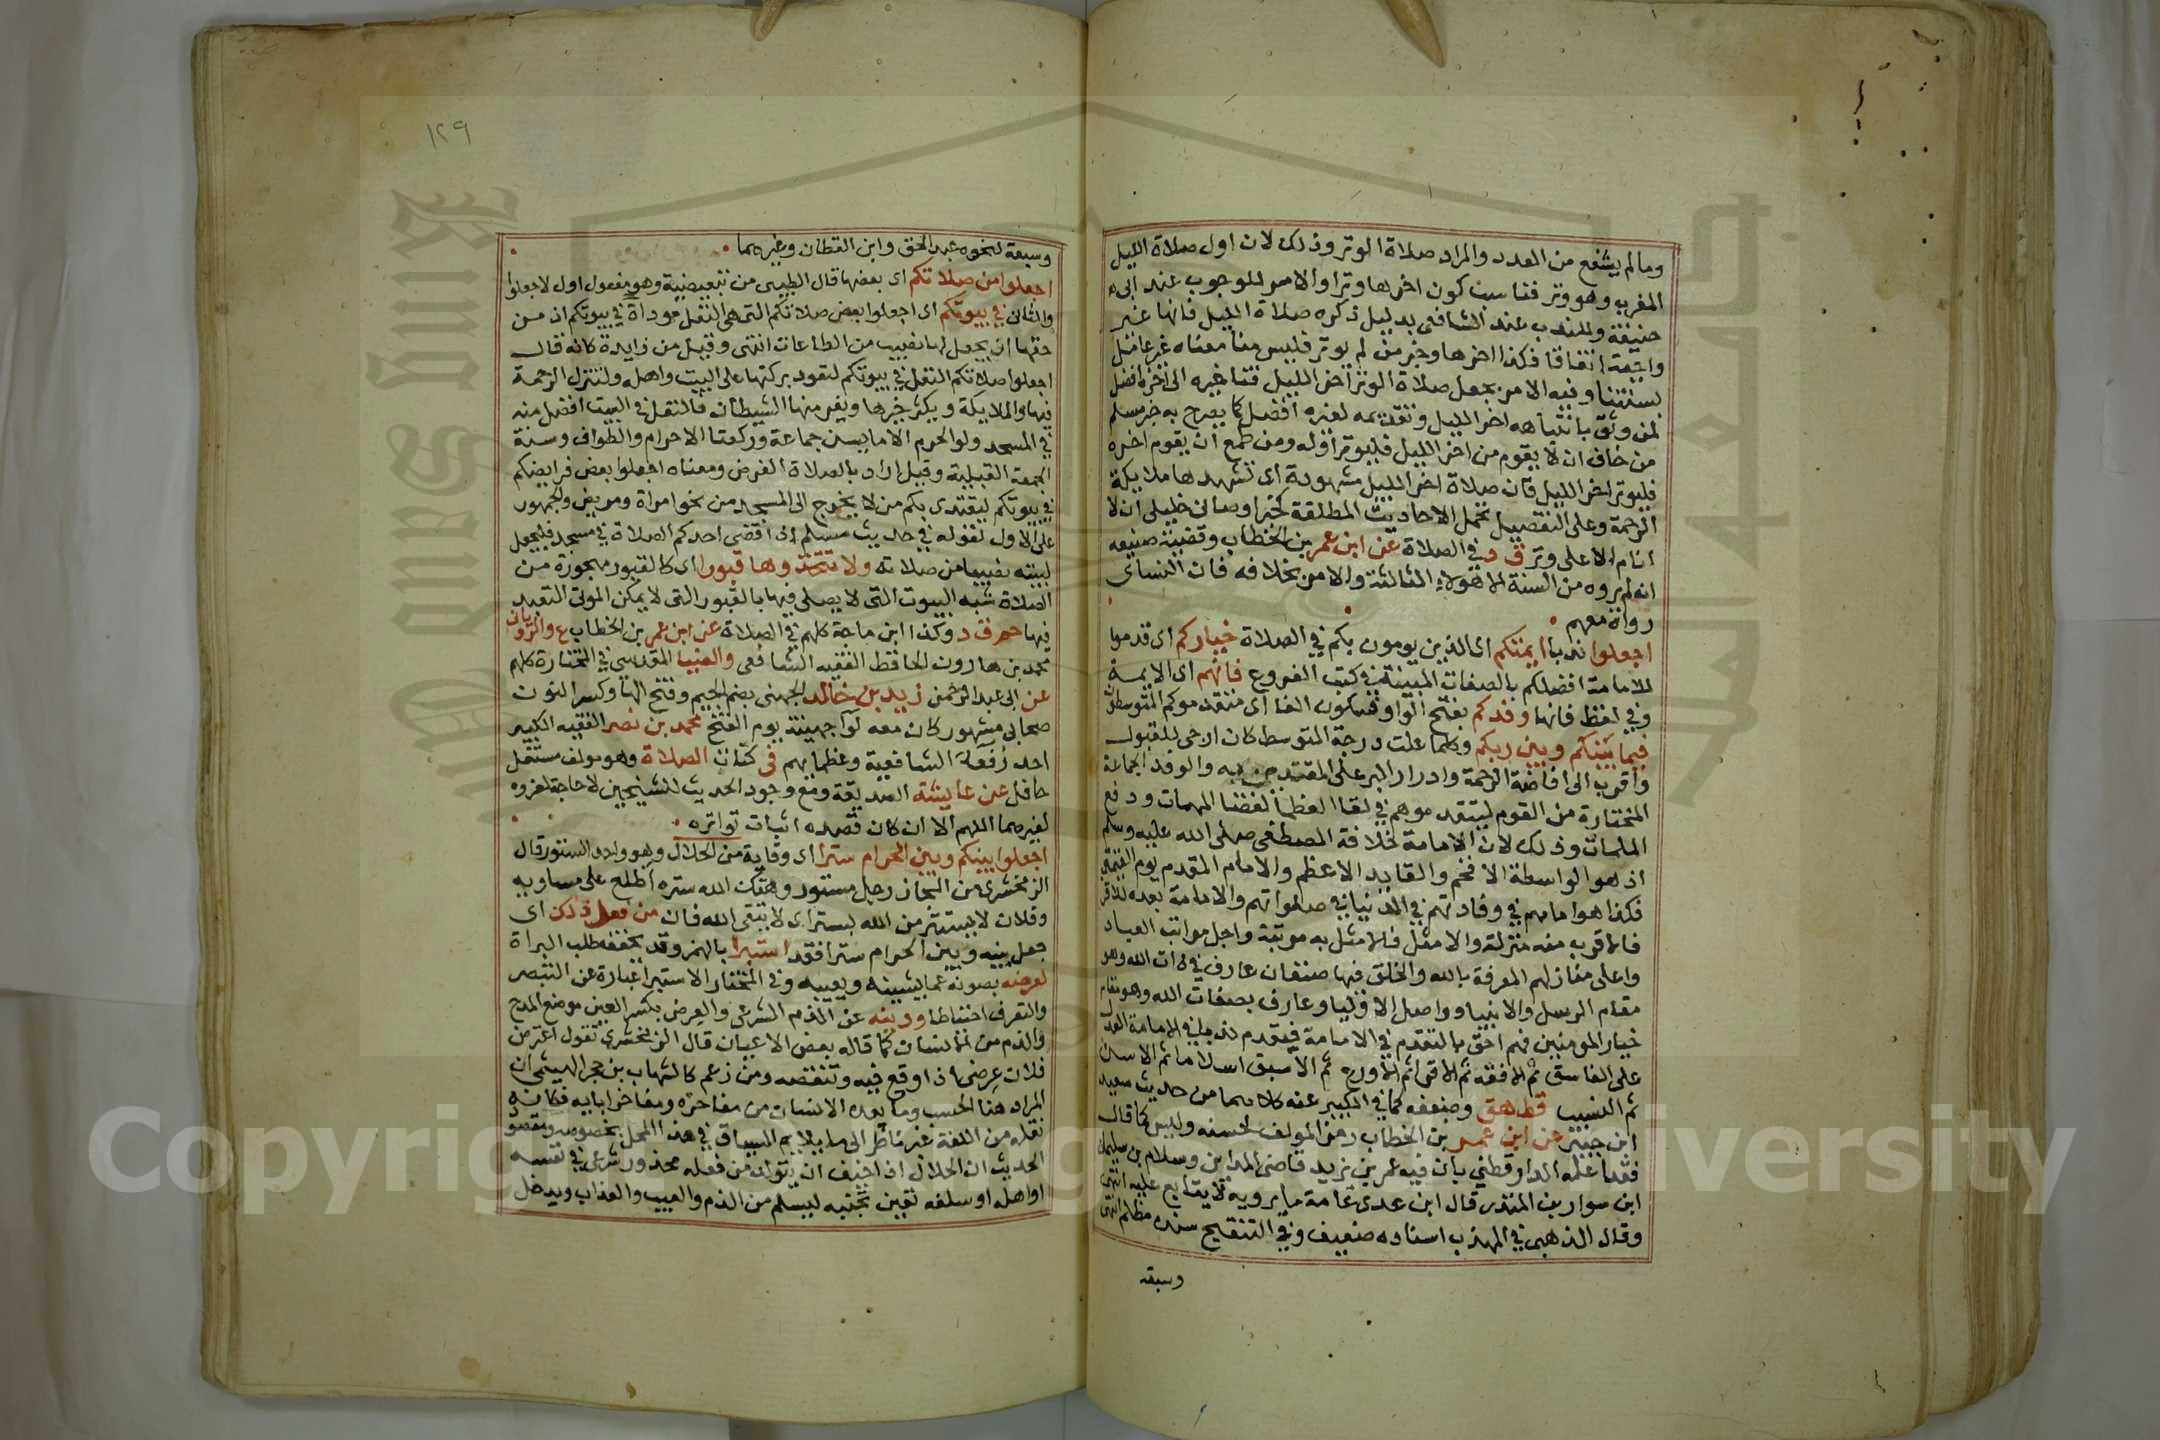 وما لم يشفع من العدد والمراد صلاة الوتر وذلك لان اول صلاة الليل
المغرب وهو وتر فناسب كون اخرها وترا والامر للوجوب عند ابي
حنيفة وللندب عند الشافعي بدليل ذكره صلاة الليل فانها غير
واجبة اتفاقا فكذا اخرها وخبر من لم يوتر فليس منا معناه غير عامل
بسنتنا وفيه الامر بجعل صلاة الوتر آخر الليل فتاخيره الى اخره افضل
لمن وثق بانتباهه اخر الليل وتقديمه لغيره افضل كما يصرح به خبر مسلم
من خاف ان لا يقوم من اخر الليل فليوتر اوله ومن طمع ان يقوم اخره
فليوتر اخر الليل فان صلاة اخر الليل مشهودة اى تشهدها ملايكة
الرحمة وعلى التفصيل تحمل الاحاديث المطلقة كخبر اوصانى خليلى ان لا
انام الا على وتر ق د في الصلاة عن ابن عمر بن الخطاب وقضية صنيعه
انه لم يروه من الستة الا هولاء الثلاثة والامر بخلافه فان النساى
رواه معهم
اجعلوا ندبا ايمتكم اى الذين يومون بكم في الصلاة خياركم اى قدموا
للامامة افضلكم بالصفات المبينة في كتب الفروع فانهم اى الايمة
وفي لفظ فانها وفدكم بفتح الواو وسكون الفا اى متقدموكم المتوسطون
فيما بينكم وبين ربكم وكلما علت درجة المتوسط كان ارجى للقبول
واقرب الى افاضة الرحمة وادرار البر على المقتدين به والوفد الجماعة
المختارة من القوم ليتقدموهم في لقا العظما لقضا المهمات ودفع
الملمات وذلك لان الامامة خلافة المصطفى صلى الله عليه وسلم
اذ هو الواسطة الافخم والقايد الاعظم والامام المقدم يوم القيمة
فكذا هو امامهم في وفادتهم في الدنيا في صلواتهم والامامة بعده للاقرب
فالاقرب منه منزلة والامثل فالامثل به مرتبة واجل مراتب العباد
واعلى منازلهم المعرفة بالله والخلق فيها صنفان عارف في ذات الله وهو
مقام الرسل والانبيا وواصل الاوليا وعارف بصفات الله وهو مقام
خيار المومنين فهم احق بالتقدم في الامامة فيقدم ندبا في الامامة العدل
على الفاسق ثم الافقه ثم الاقرا ثم الاورع ثم الاسبق اسلاما ثم الاسن
ثم النسيب قط هق وضعفه كما في الكبير عنه كلاهما من حديث سعيد
ابن جبير عن ابن عمر بن الخطاب رمز المولف لحسنه وليس كما قال
فقد اعله الدارقطني بان فيه عمر بن يزيد قاضى المداين وسلام بن سليمان
ابن سوار بن المنذر قال ابن عدي عامة ما يرويه لا يتابع عليه انتهى
وقال الذهبى في المهذب اسناده ضعيف وفي التنقيح سنده مظلم انتهى
وسبقه
١٢٩
وسبقه لنحوه عبد الحق وابن القطان وغيرهما
اجعلوا من صلاتكم اى بعضها قال الطيبى من تبعيضية وهو مفعول اول لاجعلوا
والثانى في بيوتكم اى اجعلوا بعض صلاتكم التى هى النفل موداة في بيوتكم اذ من
حقها ان يجعل لها نصيب من الطاعات انتهى وقيل من زايدة كانه قال
اجعلوا صلاتكم النفل في بيوتكم لتعود بركتها على البيت واهله ولتنزل الرحمة
فيها والملايكة ويكثر خيرها ويفر منها الشيطان فالنفل في البيت افضل منه
في المسجد ولو الحرم الا ما يسن جماعة وركعتا الاحرام والطواف وسنة
الجمعة القبلية وقيل اراد بالصلاة الفرض ومعناه اجعلوا بعض فرايضكم
في بيوتكم ليقتدى بكم من لا يخرج الى المسجد من نحو امراة ومريض والجمهور
على الاول لقوله في حديث مسلم اذا قضى احدكم الصلاة في مسجد فليجعل
لبيته نصيبا من صلاته ولا تتخذوها قبورا اى كالقبور مهجورة من
الصلاة شبه البيوت التى لا يصلى فيها بالقبور التى لا يمكن الموتى التعبد
فيها حم ق د وكذا ابن ماجة كلهم في الصلاة عن ابن عمر بن الخطاب ع والرويانى
محمد بن هارون الحافظ الفقيه الشافعى والضيا المقدسي في المختارة كلهم
عن ابى عبد الرحمن زيد بن خالد الجهنى بضم الجيم وفتح الها وكسر النون
صحابى مشهور كان معه لوا جهينة يوم الفتح محمد بن نصر الفقيه الكبير
احد رفعا الشافعية وعظمايهم في كتاب الصلاة وهو مولف مستقل
حافل عن عايشة الصديقة ومع وجود الحديث للشيخين لا حاجة لعزوه
لغيرهما اللهم الا ان كان قصده اثبات تواتره
اجعلوا بينكم وبين الحرام سترا اى وقاية من الحلال وهو واحد الستور قال
الزمخشرى من المجاز رجل مستور وهتك الله ستره اطلع على مساويه
وفلان لا يستتر من الله بستر اى لا يتقى الله فان من فعل ذلك اى
جعل بينه وبين الحرام سترا فقد استبرا بالهمز وقد يخفف طلب البراة
لعرضه بصونه عما يشينه ويعيبه وفي المختار الاستبرا عبارة عن التبصر
والتعرف احتياطا ودينه عن الذم الشرعى والعرض بكسر العين موضع المدح
والذم من الانسان كما قاله بعض الاعيان قال الزمخشرى تقول اعترض
فلان عرضى اذا وقع فيه وتنقصه ومن زعم كالشهاب بن حجر الهيثمى ان
المراد هنا الحسب وما يعده الانسان من مفاخره ومفاخر ابايه فكانه
نقله من اللغة غير ناظر الى ما يلايم السياق في هذا المحل بخصوصه ومقصود
الحديث ان الحلال اذا خيف ان يتولد من فعله محذور شرعى في نفسه
او اهله او سلفه تعين تجنبه ليسلم من الذم والعيب والعذاب ويدخل